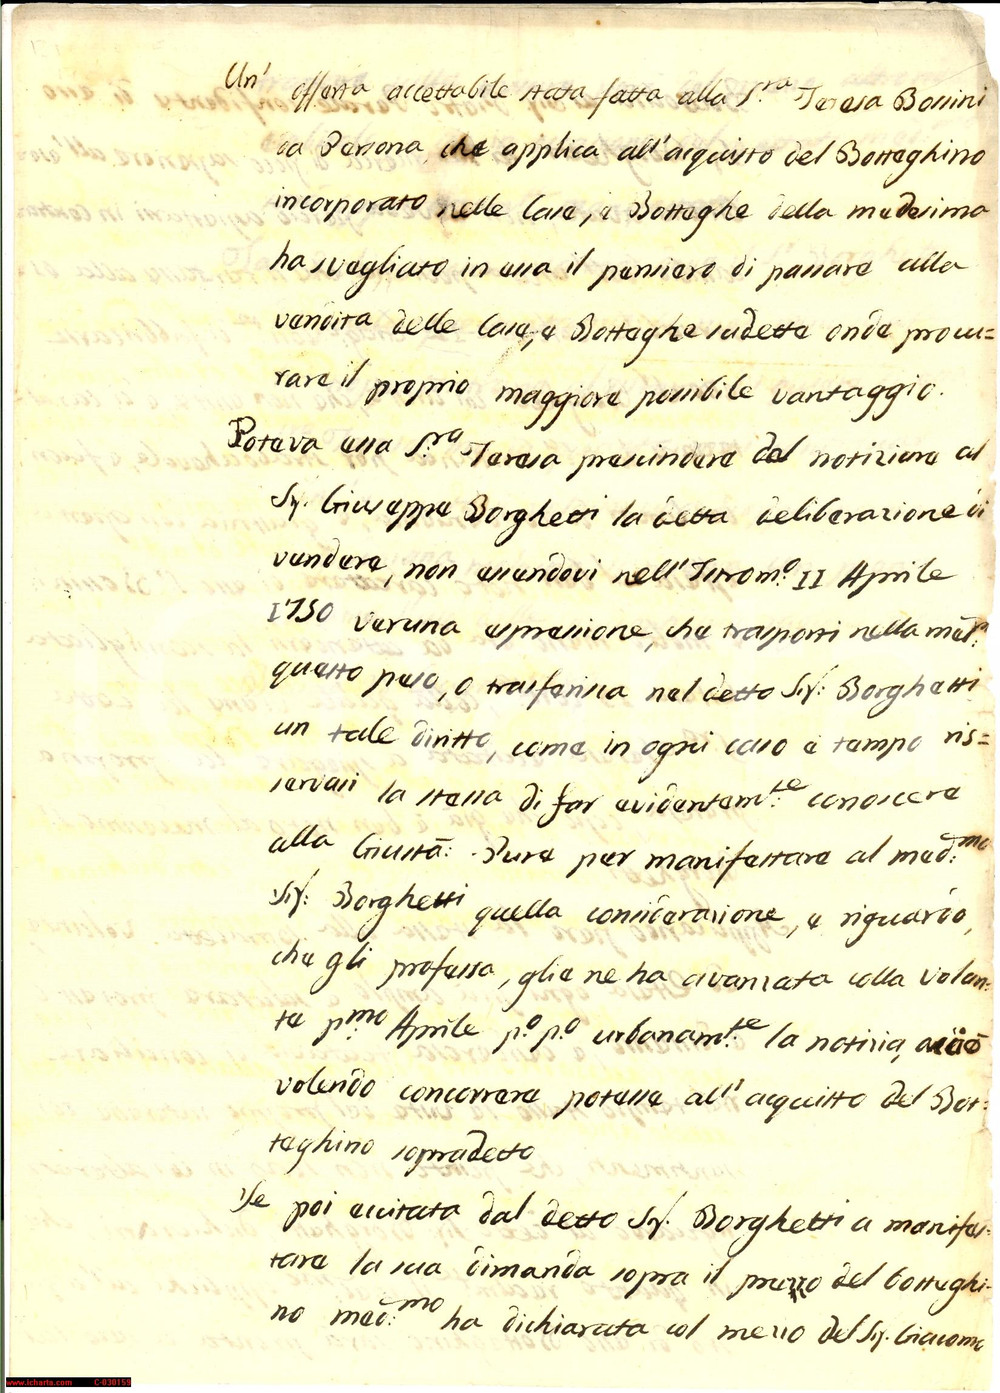 Un' offerta accettabile stata fatta alla S.ra Teresa Bossini
da Persona, che applica all'acquisto del Botteghino
incorporato nelle Case, e Botteghe della medesima
ha svegliato in essa il pensiero di passare alla
vendita delle Case, e Botteghe sudette onde procu=
rare il proprio maggiore possibile vantaggio.
Poteva essa S.ra Teresa prescindere dal notiziare al
Sig. Giuseppe Borghetti la detta deliberazione di
vendere, non essendovi nell'Istrom.o II Aprile
1750 veruna espressione, che trasporti nella med.a
questo peso, o trasferisca nel detto Sig.: Borghetti
un tale diritto, come in ogni caso e tempo ris=
servasi la stessa di far evidentem.te conoscere
alla Giustã: Pure per manifestare al med.mo
Sig.: Borghetti quella considerazione, e riguardo,
che gli professa, glie ne ha avanzata colla volan:
te p.mo Aprile p.o p.o urbanam.te la notizia, acciò
volendo concorrere potesse all'acquisto del Bot=
teghino sopradetto
Se poi eccitata dal detto Sig. Borghetti a manifes:
tare la sua dimanda sopra il prezzo del botteghi=
no med.mo ha dichiarata col mezzo del Sig. Giacomo
www.icharta.com C-030159